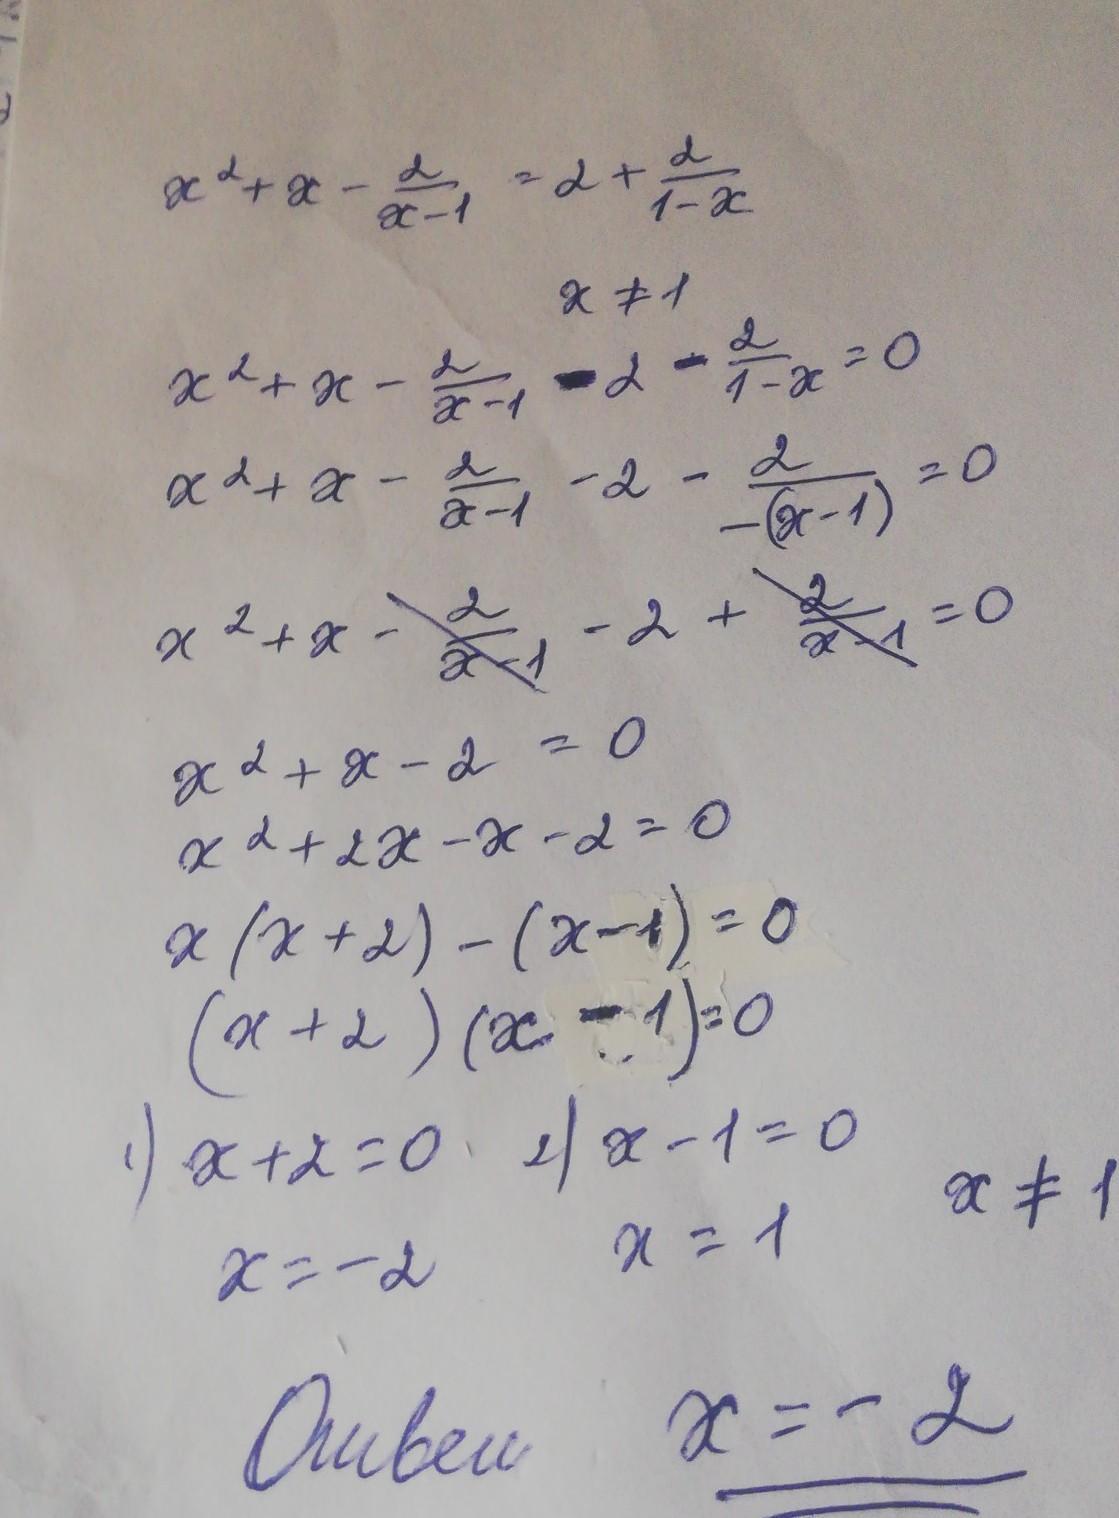 x² + x - 2/(x-1) = 2 + 2/(1-x)
x ≠ 1
x² + x - 2/(x-1) - 2 - 2/(1-x) = 0
x² + x - 2/(x-1) - 2 - 2/(-(x-1)) = 0
x² + x - 2/(x-1) - 2 + 2/(x-1) = 0
x² + x - 2 = 0
x² + 2x - x - 2 = 0
x(x+2) - (x-1) = 0
(x+2)(x-1) = 0
1) x+2=0 2) x-1=0
x ≠ 1
x = -2 x = 1
Ответ x = -2